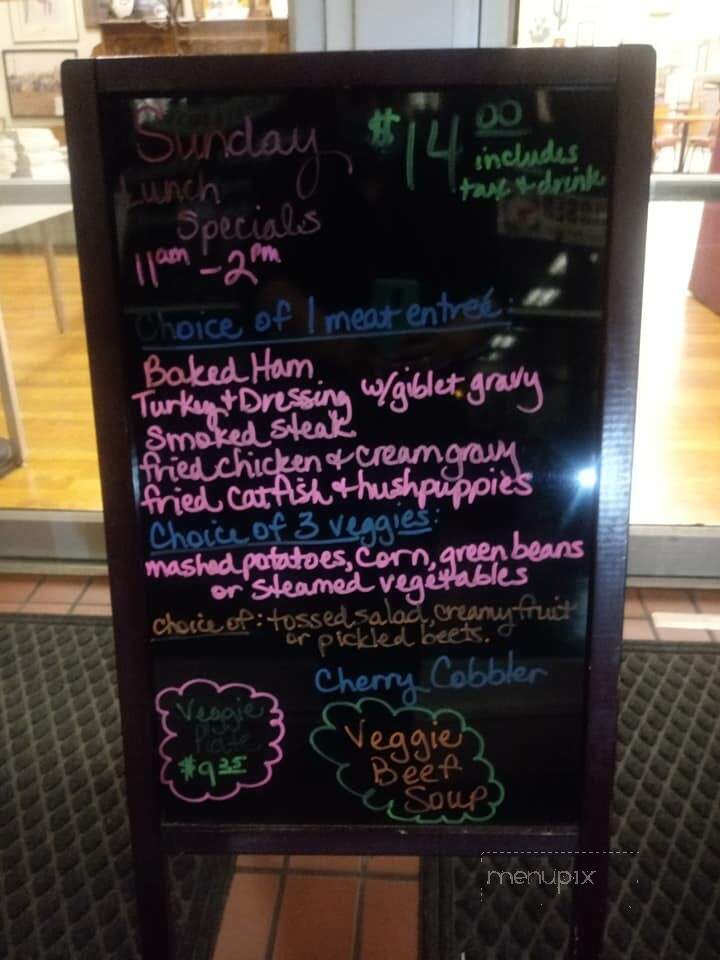 Sunday
Lunch
Specials
11am - 2pm
$14.00
includes
tax + drink
Choice of 1 meat entreé:
Baked Ham
Turkey + Dressing w/giblet gravy
Smoked steak
fried chicken & cream gravy
fried catfish + hushpuppies
Choice of 3 veggies:
mashed potatoes, corn, green beans
or steamed vegetables
choice of: tossed salad, creamy fruit
or pickled beets.
Cherry Cobbler
Veggie
Plate
$9.35
Veggie
Beef
Soup
menupix